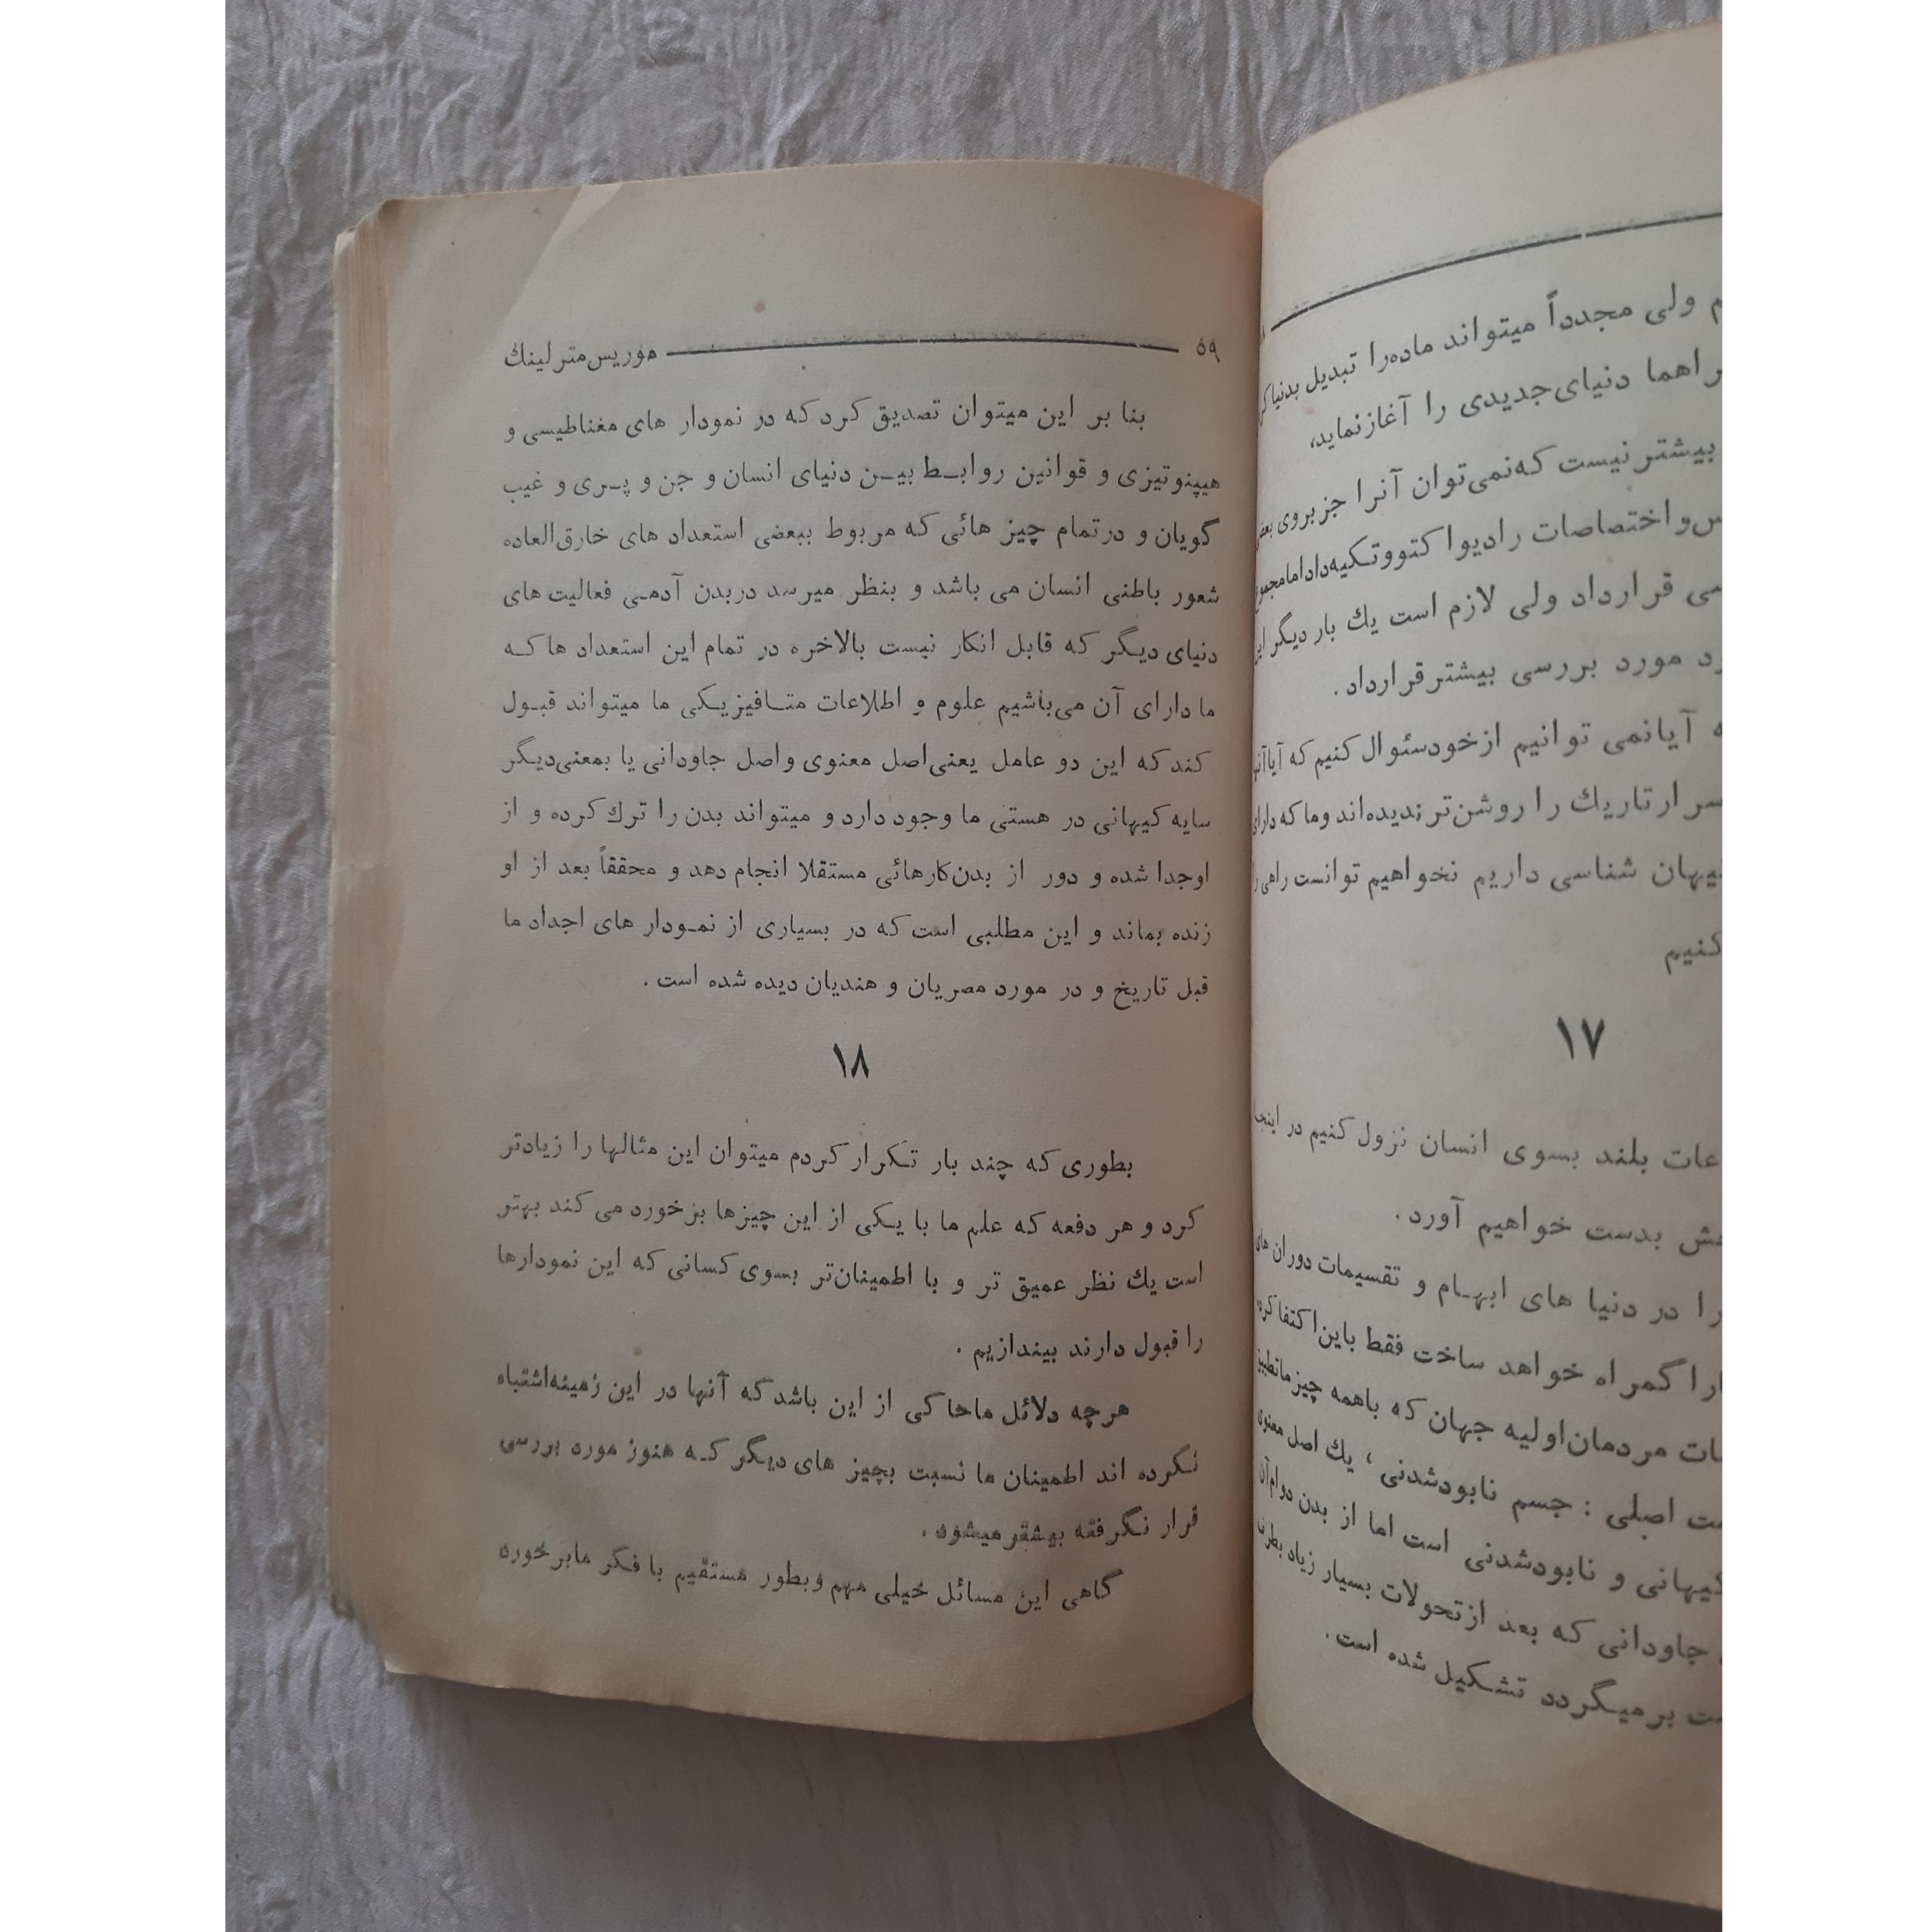 ۵۹ موریس‌مترلینك
بنا بر این میتوان تصدیق کرد که در نمودار های مغناطیسی و
هیپنوتیزی و قوانین روابـط بیـن دنیای انسان و جن و پـری و غیب
گویان و درتمام چیز هائی که مربوط ببعضی استعداد های خارق‌العاده
شعور باطنی انسان می باشد و بنظر میرسد دربدن آدمـی فعالیت های
دنیای دیـگر که قابل انکار نیست بالاخره در تمام این استعداد ها کـه
ما دارای آن می‌باشیم علوم و اطلاعات متـافیزیـکی ما میتواند قبـول
کند که این دو عامل یعنی‌اصل معنوی واصل جاودانی یا بمعنی‌دیـگر
سایه کیهانی در هستی ما وجود دارد و میتواند بدن را ترك کرده و از
اوجدا شده و دور از بدن‌کارهائی مستقلا انجام دهد و محققاً بعد از او
زنده بماند و این مطلبی است که در بسیاری از نمـودار های اجداد ما
قبل تاریخ و در مورد مصریان و هندیان دیده شده است .
۱۸
بطوری که چند بار تـکرار کردم میتوان این مثالها را زیادتر
کرد و هر دفعه که علم ما با یـکی از این چیزها برخورد می کند بهتر
است یك نظر عمیق تر و با اطمینان‌تر بسوی کسانی که این نمودارها
را قبول دارند بیندازیم .
هرچه دلائل ماحاکی از این باشد که آنها در این زمینه‌اشتباه
نـگرده اند اطمینان ما نسبت بچیز های دیـگر کـه هنوز مورد بررسی
قرار نـگرفته بیشتر میشود .
گاهی این مسائل خیلی مهم وبطور مستقیم با فـکر مابرخورد
م ولی مجدداً میتواند ماده‌را تبدیل بدنیا
دنیای‌جدیدی را آغازنماید،
بیشتر نیست که‌نمی‌توان آنرا جز بروی
اختصاصات رادیوا کتووتـکیه‌داد
قرارداد ولی لازم است یك بار دیـگر این
مورد بررسی بیشترقرارداد .
آیانمی توانیم ازخودسئوال کنیم که آیاآنها
تاریك را روشن‌تر ندیده‌اند وما که دارای
شناسی داریم نخواهیم توانست راهی
کنیم
۱۷
بلند بسوی انسان نزول کنیم در اینجا
بدست خواهیم آورد.
را در دنیا های ابهـام و تقسیمات دوران های
گمراه خواهد ساخت فقط باین‌اکتفا کرده
مردمان‌اولیه جهان که باهمه چیز
اصلی : جسم نابودشدنی ، یك اصل معنوی
کیهانی و نابودشدنی است اما از بدن دوام‌آن
جاودانی که بعد ازتحولات بسیار زیاد بطرف
برمیـگردد تشـکیل شده است .